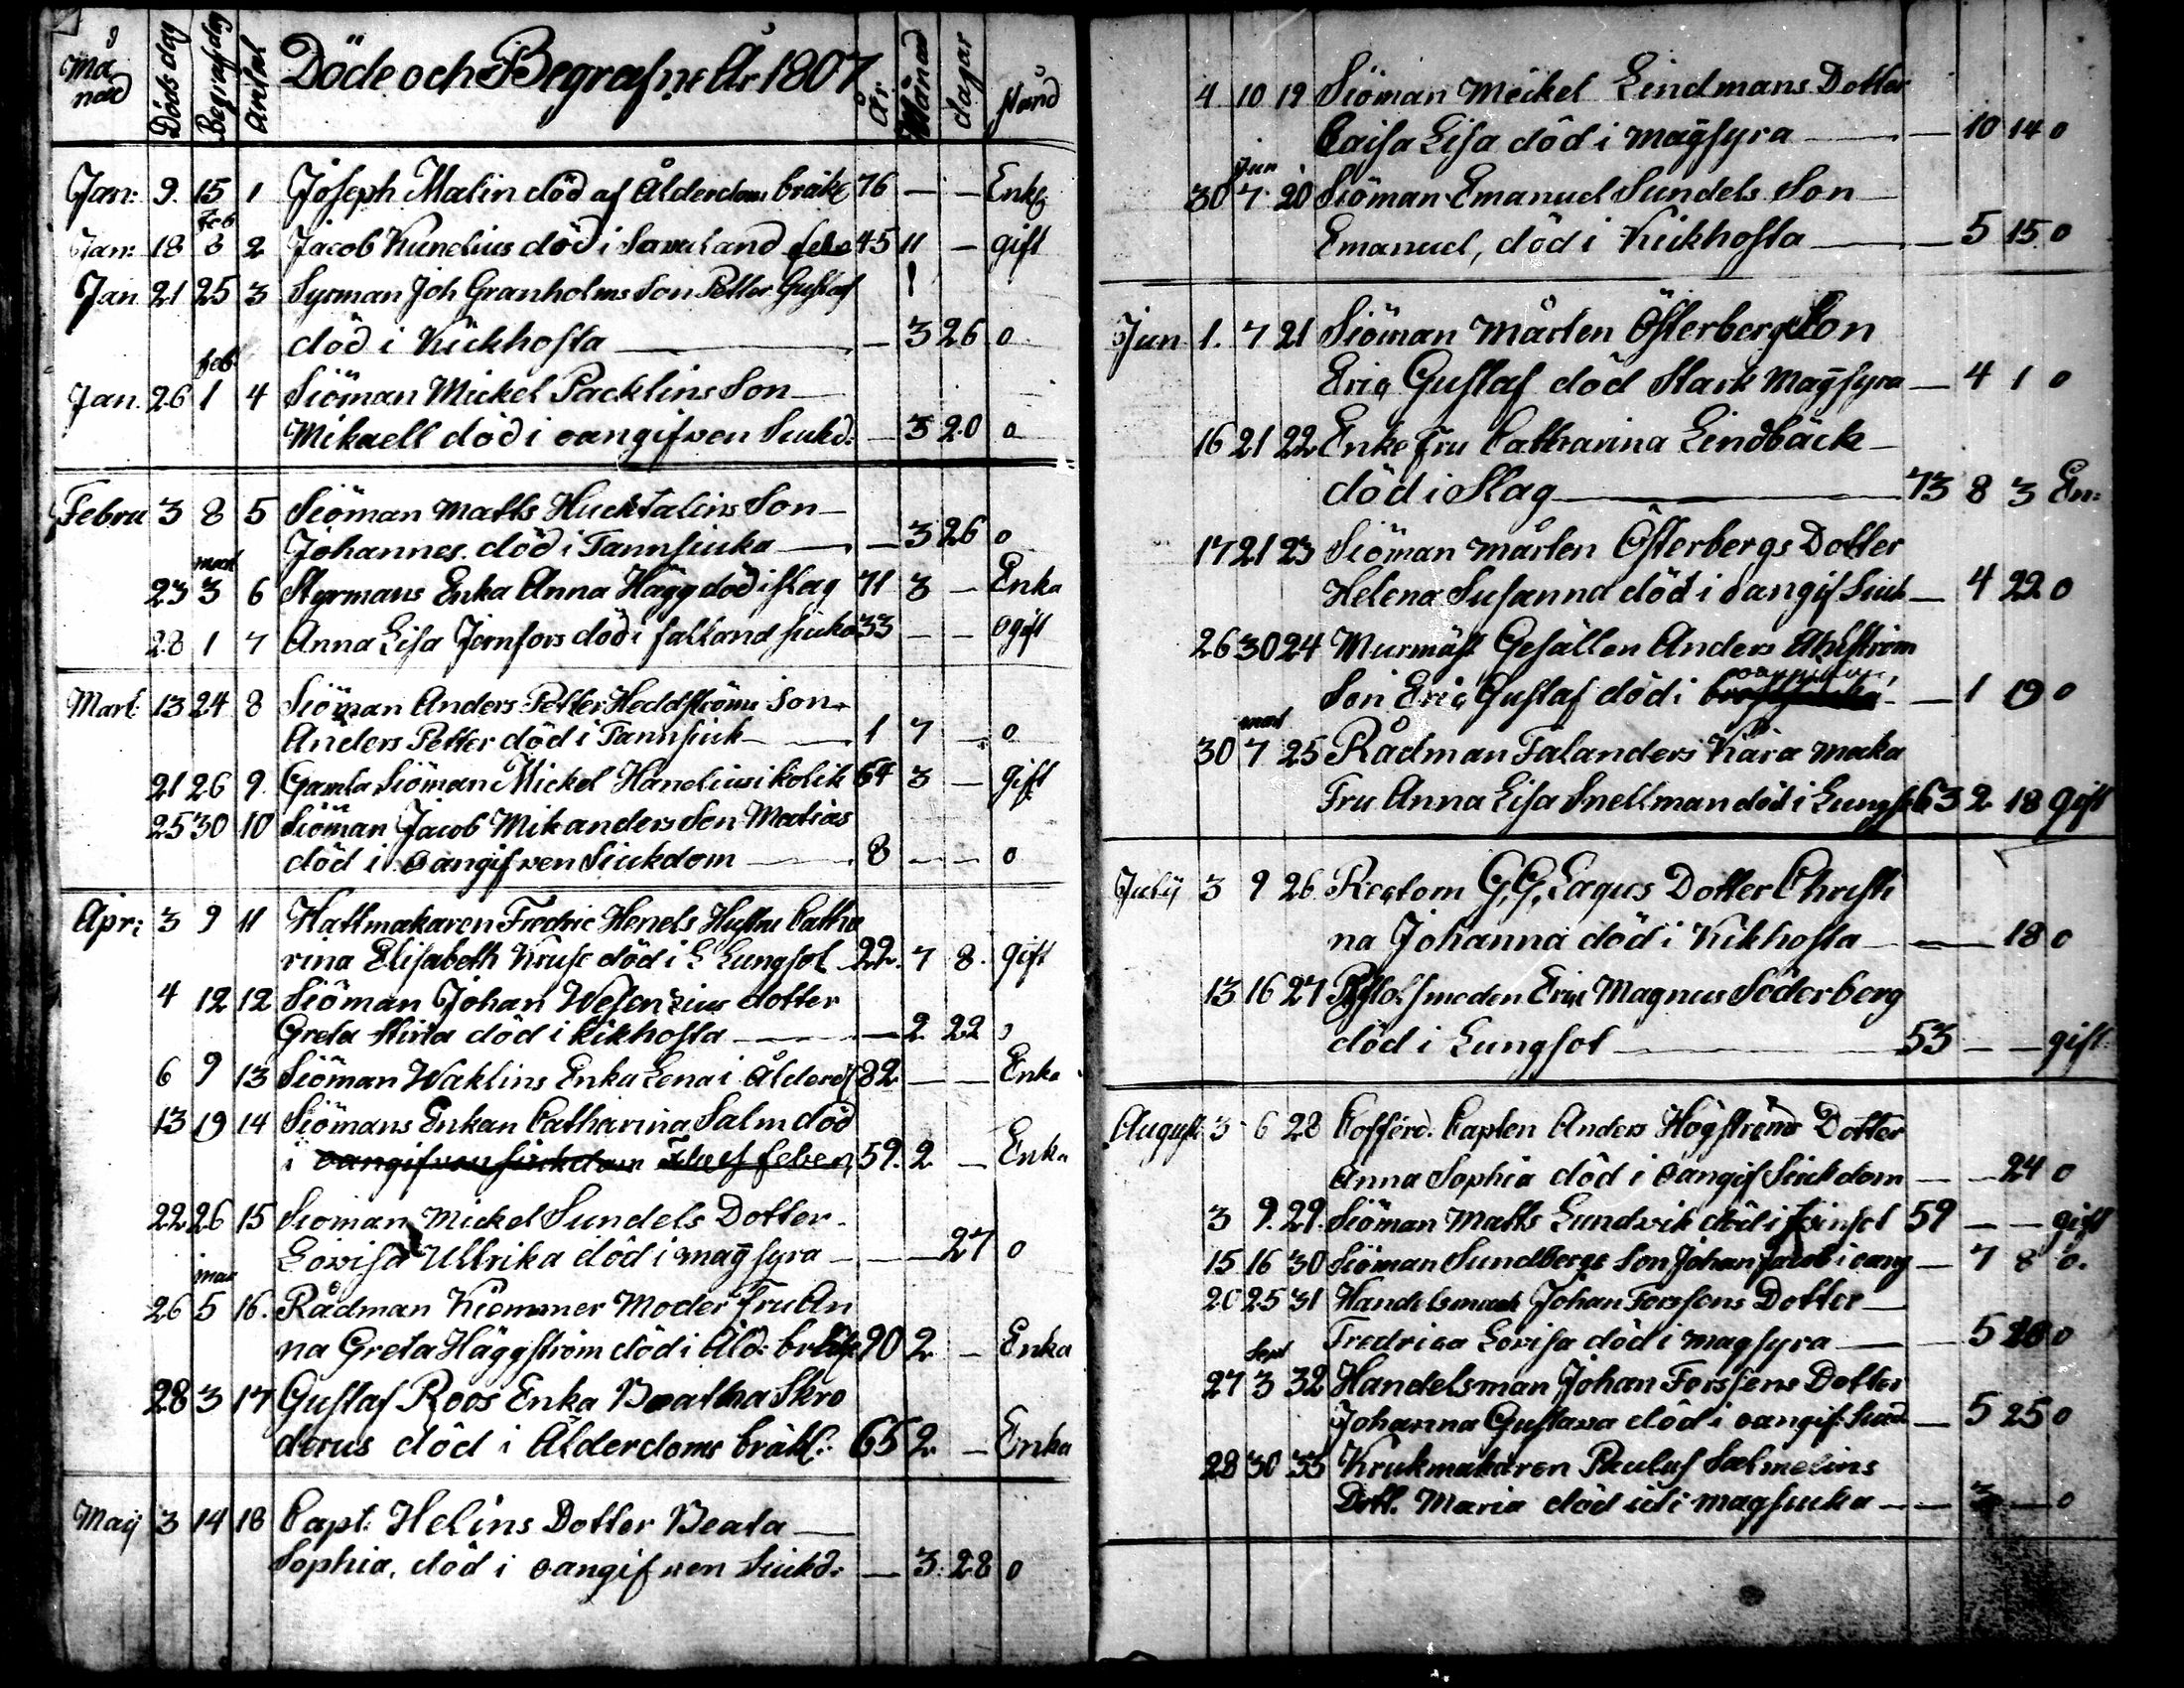 Månad Döds dag Begrafdag Antal Döde och Begrafne År 1807 år Månad dagar Stånd
Jan: 9. 15 1 Joseph Malin död af Ålderdoms bräkl 76 — — Enkl
Feb
Jan: 18 8 2 Jacob Kunelius död i feber 45 11 — gift
Jan 21 25 3 Syrman Joh Granholms Son Petter Gustaf
död i Kickhosta — 3 26 o
feb
Jan. 26 1 4 Siöman Mickel Packlins Son
Mikaell död i oangifven Siukd: — 3 20 o
Febru 3 8 5 Siöman Matts Hucktalins Son
Johannes död i Tannsiuka — 3 26 o
mart
23 3 6 Styrmans Enka Anna Hägg död i slag 71 3 — Enka
28 1 7 Anna Lisa Jernfors död i falland siuka 33 — — ogift
Mart 13 24 8 Siöman Anders Petter Heddströms Son
Anders Petter död i Tannsiuk 1 7 — o
21 26 9. Gamla Siöman Mickel Hanelius i kolik 64 3 — gift
25 30 10 Siöman Jacob Mikanders Son Matias
död i oangifven Siukdom 8 — — o
Apr: 3 9 11 Hattmakaren Fredric Henels Hustru Catha
rina Elisabeth Kruse död i L Lungsot 22. 7 8. gift
4 12 12 Siöman Johan Wesenzius dotter
Greta Stina död i kikhosta — 2 22 o
6 9 13 Siöman Waklins Enka Lena i Ålderd 82 — — Enka
13 19 14 Siömans Enkan Catharina Salm död
i oangifven siukdom feber 59. 2 — Enka
22 26 15 Sioman Mickel Sundels Dotter
Lovisa Ullrika död i magsyra — — 27 o
mai
26 5 16. Rådman Kiemmer Moder Fru An
na Greta Häggström död i Åld: bräkl 90 2 — Enka
28 3 17 Gustaf Roos Enka Beatha Skro
derus död i Ålderdoms bräkl: 65 2 — Enka
Maij 3 14 18 Capt: Helins Dotter Beata
Sophia, död i oangifven Siukd: — 3 28 o
4 10 19 Siöman Meikel Lindmans Dotter
Caisa Lisa död i magsyra — 10 14 o
Jun
30 7 20 Siöman Emanuel Sundels Son
Emanuel, död i Kickhosta — 5 15 o
Jun 1. 7 21 Siöman Mårten Österbergs Son
Eric Gustaf död Stark Magsyra — 4 1 o
16 21 22 Enke Fru Catharina Lindbäck
död i Slag 73 8 3 En:
17 21 23 Siöman Mårten Österbergs Dotter
Helena Susanna död i oangif Siuk — 4 22 o
26 30 24 Murmäst Gesällen Anders Ahlström
oangifven
Son Eric Gustaf död i bröstsiuka — 1 19 o
30 7 25 Rådman Falanders Kära Maka
Fru Anna Lisa Snellman död i Lungs 63 2 18 gift
Julij 3 9 26 Rectorn G. G. Lagus Dotter Christi
na Johanna död i Kikhosta — — 18 o
13 16 27 Pistolsmeden Eric Magnus Söderberg
död i Lungsot 53 — — gift
August 3 6 28 Cofferd. Capten Anders Högströms Dotter
Anna Sophia död i oangif Siukdom — — 24 o
3 9. 29. Siöman Matts Lundvik död i 59 — — gift
15 16 30 Siöman Sundbergs Son Johan Jacob i oang — 7 8 o.
20 25 31 Handelsman Johan Forssens Dotter
Fredrica Lovisa död i magsyra — 5 o
Sept
27 3 32 Handelsman Johan Forssens Dotter
Johanna Gustava död i oangif: Siuk — 5 25 o
28 30 33 Krukmakaren Paulus Salmelins
Dott. Maria död uti magsiuka — 3 — o